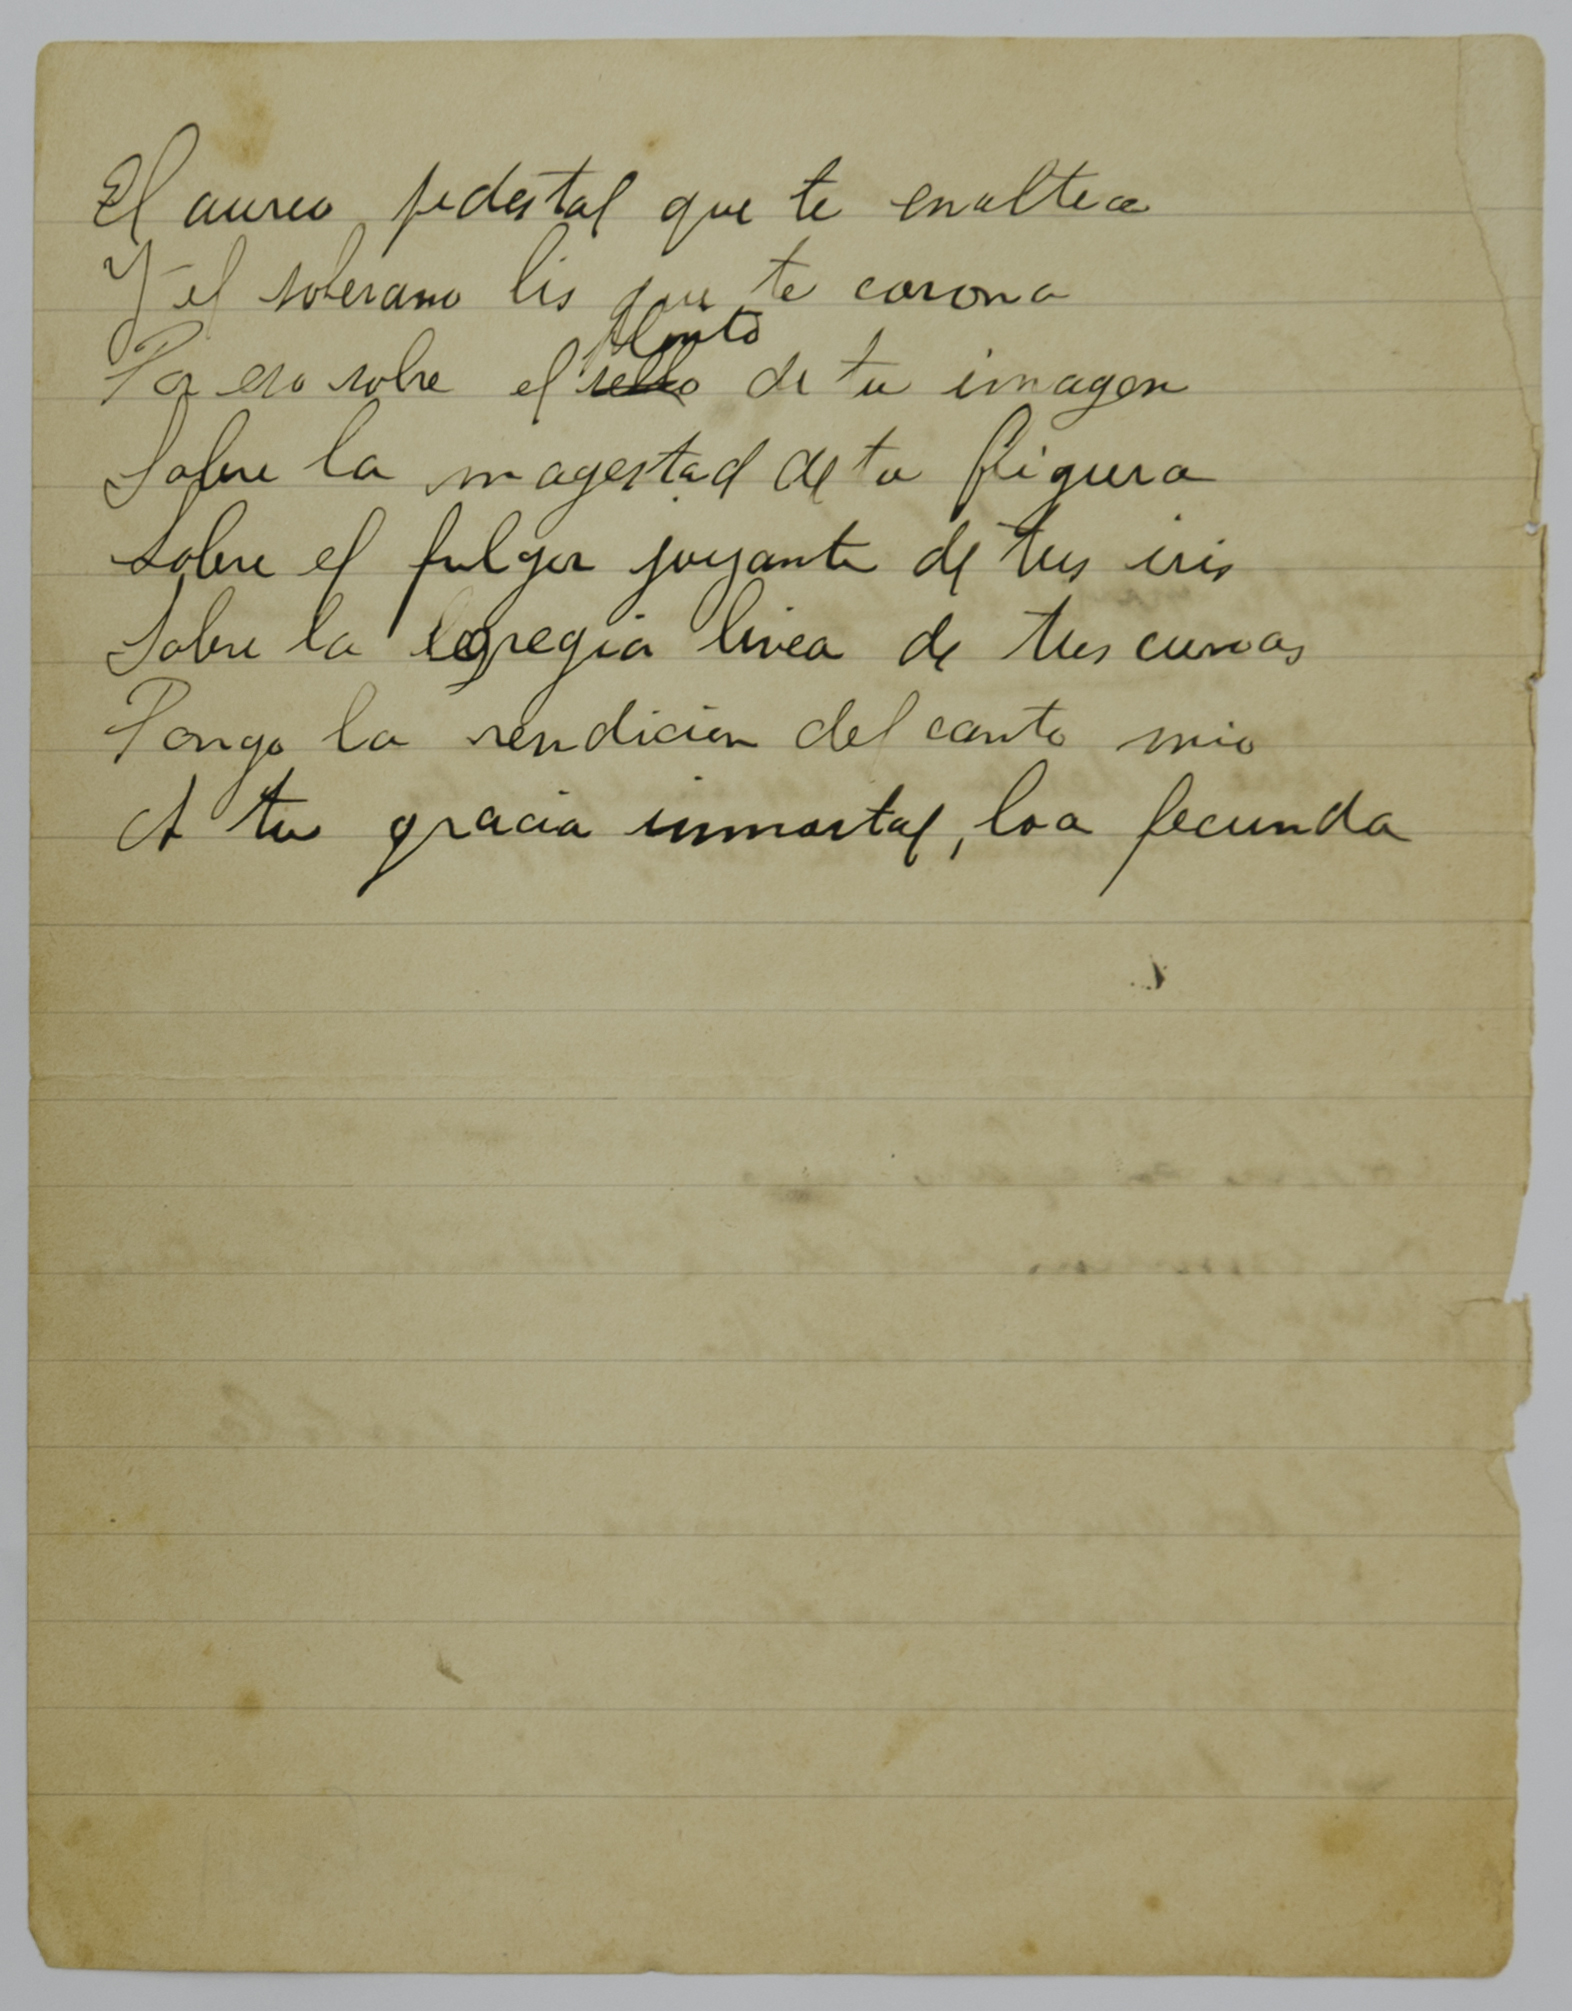 El aureo pedestal que te enaltece
Y el soberano lis que te corona
plinto
Por eso sobre el sello de tu imagen
Sobre la magestad de tu figura
Sobre el fulgor joyante de tus iris
Sobre la egregia linea de tus curvas
Pongo la rendicion del canto mio
A tu gracia inmortal, loa fecunda